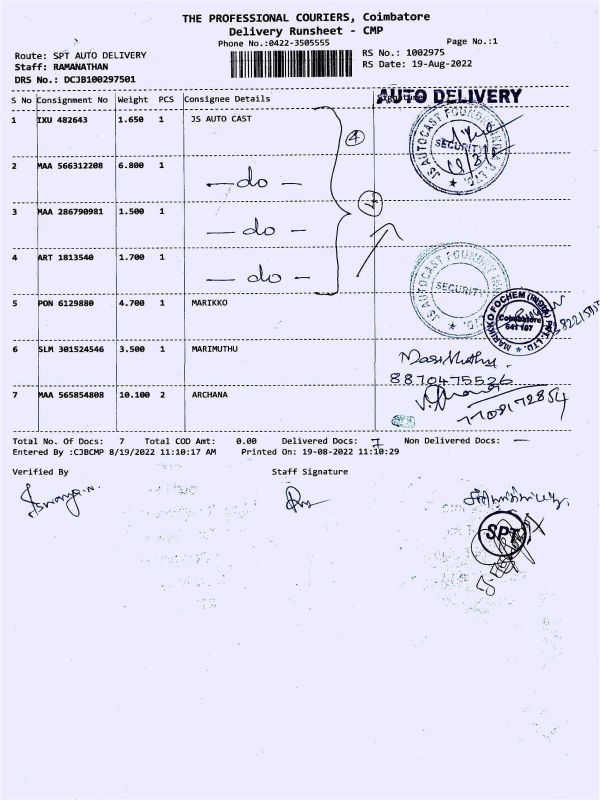 THE PROFESSIONAL COURIERS, Coimbatore
Delivery Runsheet - CMP
Phone No.:0422-3505555
Page No.:1
Route: SPT AUTO DELIVERY
RS No.: 1002975
Staff: RAMANATHAN
RS Date: 19-Aug-2022
DRS No.: DCJB100297501
AUTO DELIVERY
S No Consignment No Weight PCS Consignee Details
1 IXU 482643 1.650 1 JS AUTO CAST
4
JS AUTOCAST FOUNDRY INDIA P. LTD.
SECURITY
2 MAA 566312208 6.800 1 — do —
3 MAA 286790981 1.500 1 — do —
4 ART 1813540 1.700 1 — do —
JS AUTOCAST FOUNDRY INDIA P. LTD.
SECURITY
5 PON 6129880 4.700 1 MARIKKO
MARIKKO FOCHEM (INDIA) PVT. LTD.
Coimbatore
641 107
6 SLM 301524546 3.500 1 MARIMUTHU
8870475526
7 MAA 565854808 10.100 2 ARCHANA
7708172854
Total No. Of Docs: 7 Total COD Amt: 0.00 Delivered Docs: 7 Non Delivered Docs: —
Entered By :CJBCMP 8/19/2022 11:10:17 AM Printed On: 19-08-2022 11:10:29
Verified By Staff Signature
SPT